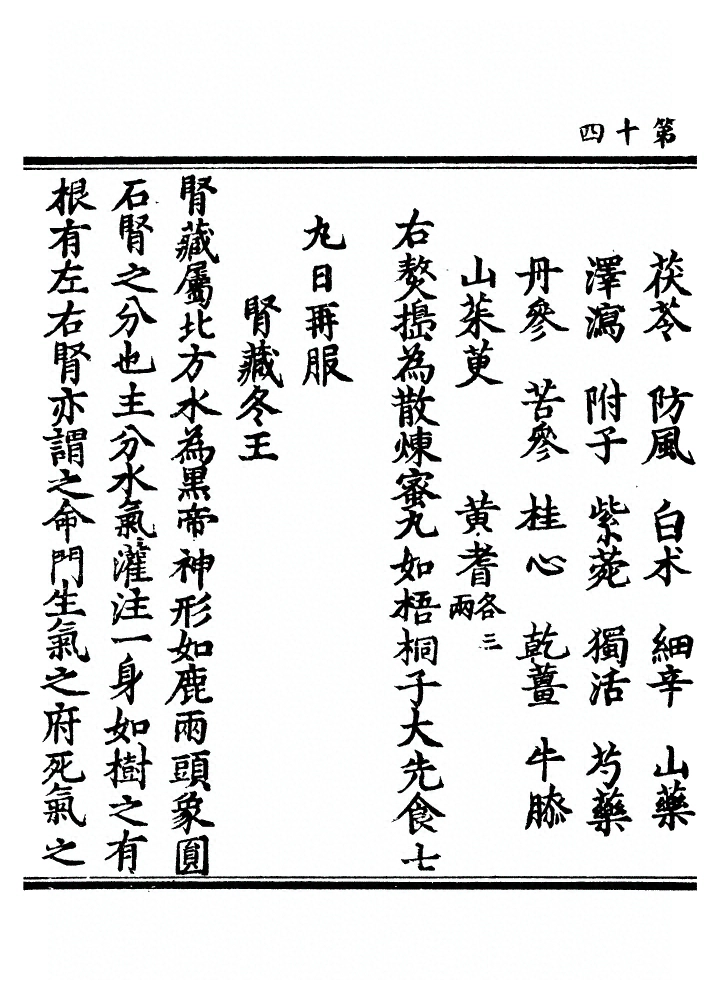 第十四
茯苓 防風 白术 細辛 山藥
澤瀉 附子 紫菀 獨活 芍藥
丹參 苦參 桂心 乾薑 牛膝
山茱萸 黄耆各三兩
右熬搗為散煉蜜丸如梧桐子大先食七
丸日再服
腎藏冬王
腎藏屬北方水為黒帝神形如鹿兩頭象圓
石腎之分也主分水氣灌注一身如樹之有
根有左右腎亦謂之命門生氣之府死氣之